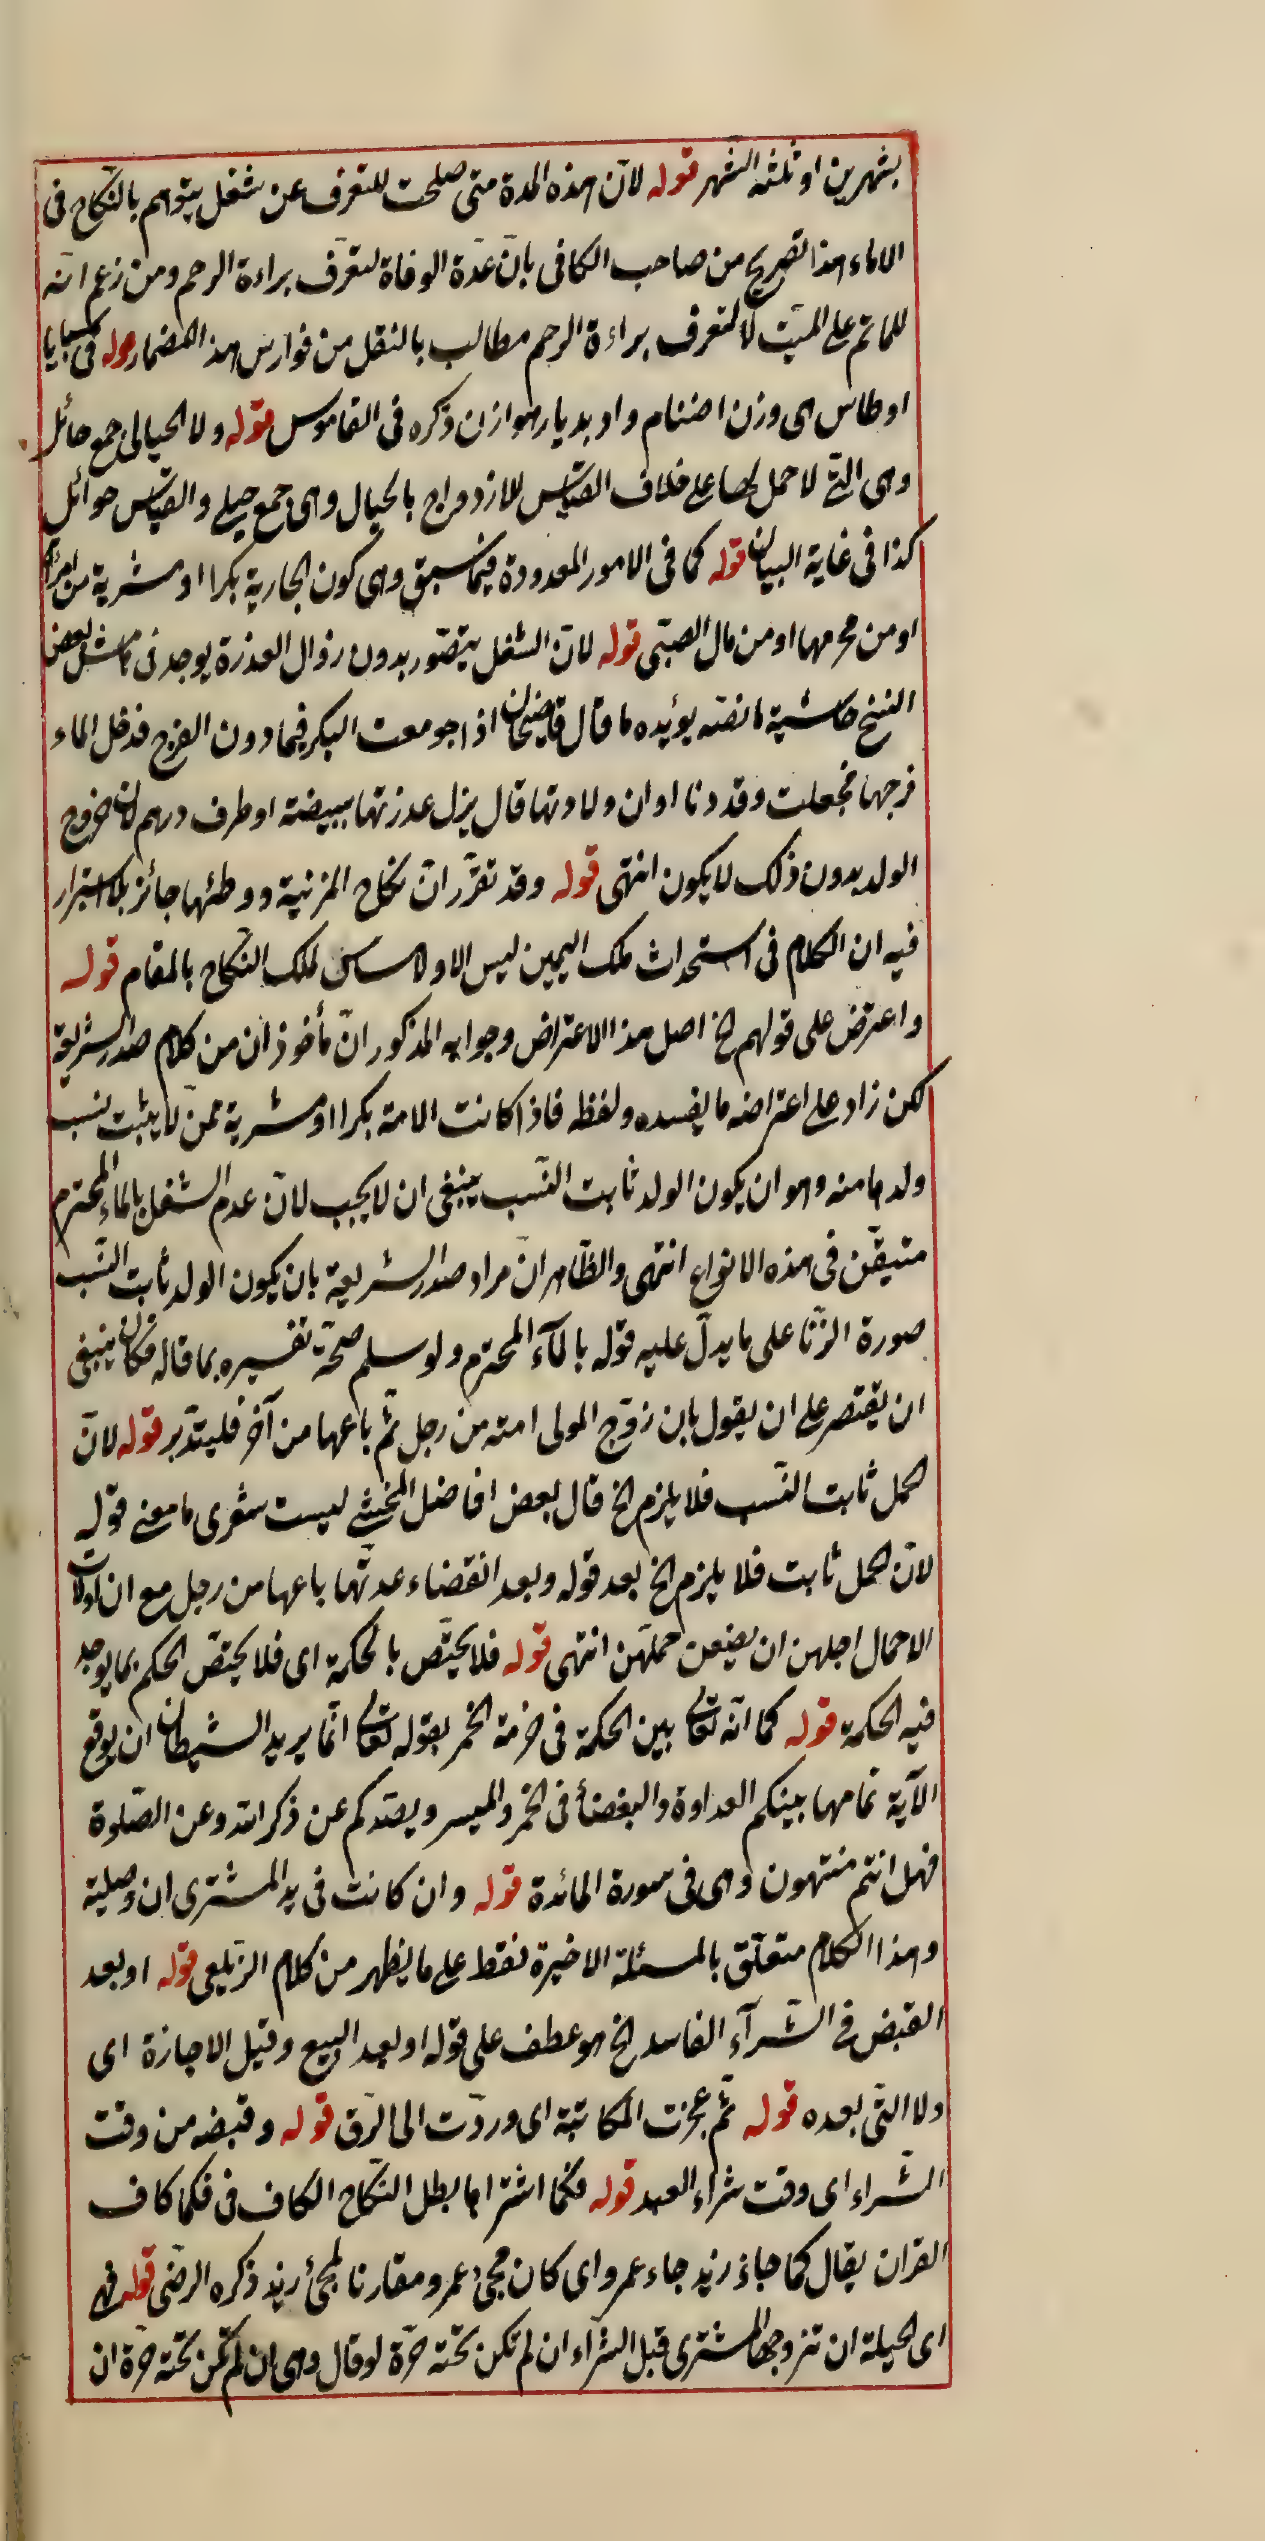 بشهرين او ثلثة اشهر قوله لانّ هذه المدة متى صلحت للتعرف عن شغل يتوهم بالنكاح فى
الاماء هذا تصريح من صاحب الكافى بانّ عدّة الوفاة لتعرّف براءة الرحم ومن زعم انّه
للماتم على الميّت لا لتعرف براءة الرحم مطالب بالنقل من فوارس هذا المضمار قوله فى سبايا
اوطاس هى وزن اضنام واد بديار هوازن ذكره فى القاموس قوله ولا الحيالى جمع حائل
وهى التّى لا حمل لها على خلاف القياس للازدواج بالحبال وهى جمع حبلى والقياس حوائل
كذا فى غاية البيان قوله كما فى الامور المعدودة فيما سبق وهى كون الجارية بكرا او مشرية من امرأة
او من محرمها او من مال الصبّى قوله لانّ الشغل يتصّور بدون زوال العذرة يوجد فى هامش بعض
النسخ حاشية ما نصّه يؤيده ما قال قاضيخان اذا جومعت البكر فيما دون الفرج فدخل الماء
فرجها فجعلت وقد دنا اوان ولادتها قال يزل عذرتها ببيضة او طرف درهم لان خروج
الولد بدون ذلك لا يكون انتهى قوله وقد تقرّر انّ نكاح المزنية ووطئها جائز بلا استبراء
فيه ان الكلام فى استحداث ملك اليمين ليس الا ولا مساس لملك النّكاح بالمقام قوله
واعترض على قولهم الخ اصل هذا الاعتراض وجوابه المذكور انّ مأخوذان من كلام صدر الشريعة
لكن زاد على اعتراضه ما يفسده ولفظه فاذا كانت الامة بكرا او مشرية ممن لا يثبت نسب
ولدها منه وهو ان يكون الولد ثابت النّسب ينبغى ان لا يجب لانّ عدم الشغل بالماء المحترم
متيقّن فى هذه الانواع انتهى والظّاهر انّ مراد صدر الشريعة بان يكون الولد ثابت النّسب
صورة الزّنا على ما يدلّ عليه قوله بالمآء المحترم ولو سلم صحّة تفسيره بما قاله فكان ينبغى
ان يقتصر على ان يقول بان زوّج المولى امته من رجل ثمّ باعها من آخر فليتدّبر قوله لانّ
الحمل ثابت النّسب فلا يلزم الخ قال بعض افاضل المحشّى ليست شعرى ما معنى قوله
لانّ الحمل ثابت فلا يلزم الخ بعد قوله وبعد انقضاء عدّتها باعها من رجل مع ان اولات
الاحمال اجلهن ان يضعن حملهّن انتهى قوله فلا يختّص بالحكمة اى فلا يختصّ الحكم بما يوجد
فيه الحكمة قوله كما انّه تعالى بين الحكمة فى حرمة الخمر بقوله تعالى انّما يريد الشيطان ان يوقع
الآية تمامها بينكم العداوة والبغضاء فى الخمر والميسر ويصّدكم عن ذكر الله وعن الصّلوة
فهل انتم منتهون وهى فى سورة المائدة قوله وان كانت فى يد المشترى ان وصلية
وهذا الكلام متعلّق بالمسئلة الاخيرة فقط على ما يظهر من كلام الزّيلعى قوله او بعد
القبض فى الشّرآء الفاسد الخ هو عطف على قوله او بعد البيع وقبل الاجازة اى
ولا التّى بعده قوله ثمّ عجزت المكاتبة اى وردّت الى الرّق قوله وقبضه من وقت
الشّراء اى وقت شراء العبد قوله فكما اشتراها بطل النّكاح الكاف فى فكما كاف
القران يقال كما جاء زيد جاء عمرو اى كان مجئ عمرو مقارنا لمجئ زيد ذكره الرضّى قوله فهى
اى الحيلة ان تزوجها المشترى قبل الشّراء ان لم تكن تحته حرّة لو قال وهى ان لم تكن تحته حرّة ان